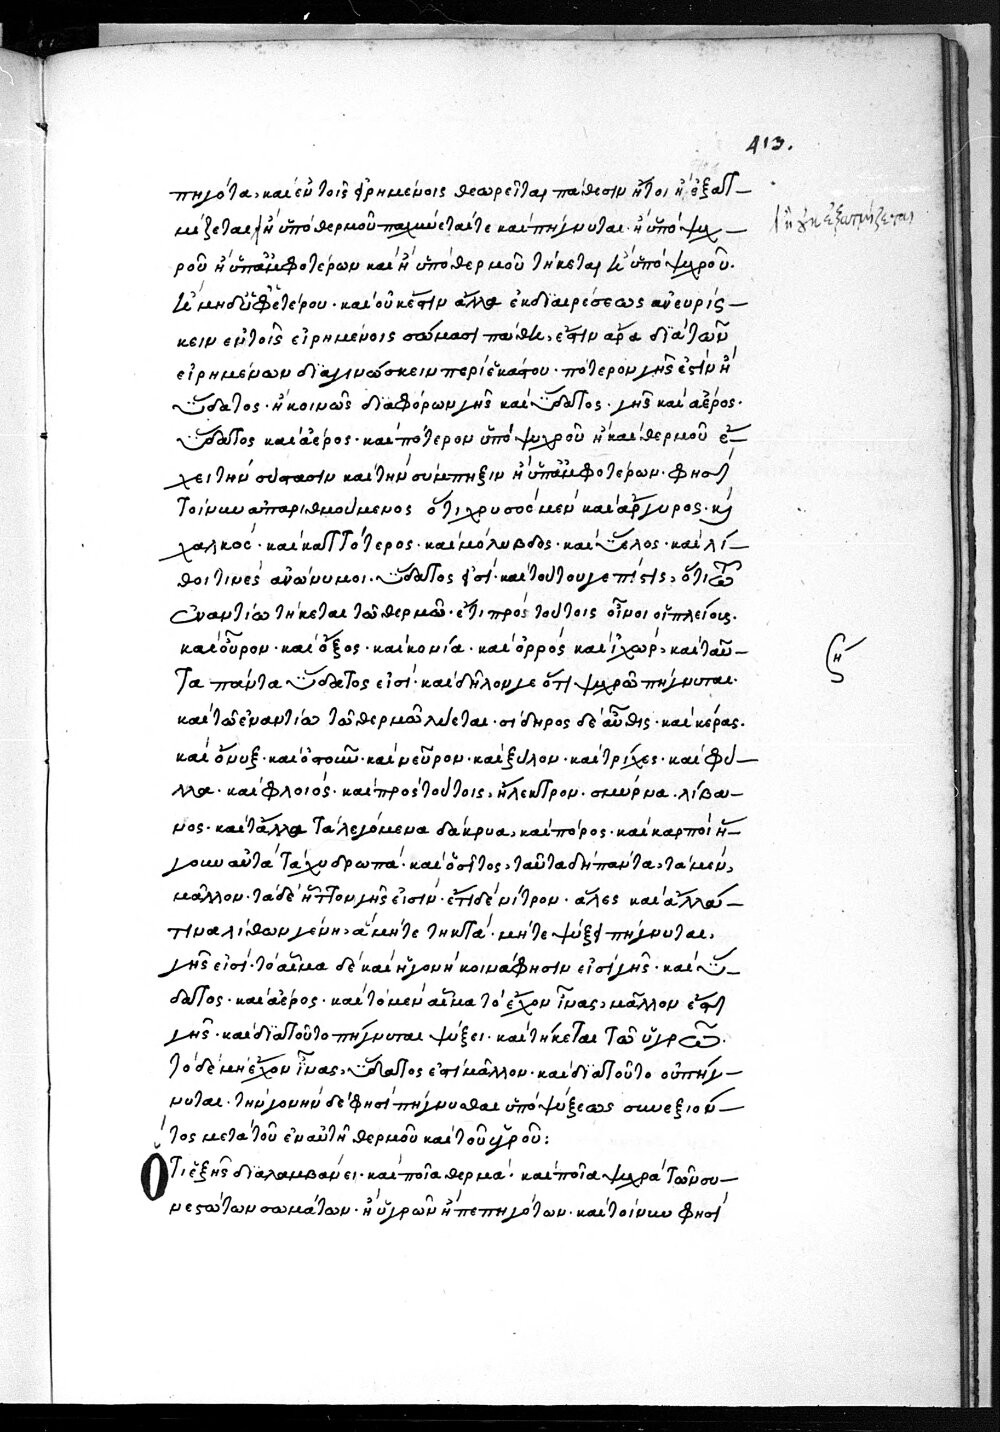 413.
πηγότα, καὶ ἐν τοῖς εἰρημένοις θεωρεῖται πάθεσιν ἤτοι ἢ ἐξατ-
μίζεται, ἢ ὑπὸ θερμοῦ παχύνεταί τε καὶ πήγνυται· ἢ ὑπὸ ψυχ-
ροῦ ἢ ὑπ' ἀμφοτέρων καὶ ἢ ὑπὸ θερμοῦ τήκεται ἢ ὑπὸ ψυχροῦ.
ἢ μηδ' ὑφ' ἑτέρου· καὶ οὐκ ἔστιν ἄλλα ἐκ διαιρέσεως ἀνευρίσ-
κειν ἐν τοῖς εἰρημένοις σώμασι πάθη, ἔστιν ἄρα διὰ τῶν
εἰρημένων διαγινώσκειν περὶ ἑκάστου· πότερον γῆς ἐστὶν ἢ
ὕδατος· ἢ κοινῶς διαφόρων γῆς καὶ ὕδατος· γῆς καὶ ἀέρος·
ὕδατος καὶ ἀέρος· καὶ πότερον ὑπὸ ψυχροῦ ἢ καὶ θερμοῦ ἔ-
χει τὴν σύστασιν καὶ τὴν σύμπηξιν ἢ ὑπ' ἀμφοτέρων· φησὶ
τοίνυν ἀπαριθμούμενος ὅτι χρυσὸς μὲν καὶ ἄργυρος· καὶ
χαλκός· καὶ καττίτερος· καὶ μόλυβδος· καὶ ὕελος· καὶ λί-
θοι τινὲς ἀνώνυμοι· ὕδατος εἰσί· καὶ τούτου γε πίστις, ὅτι τῷ
ἐναντίω τήκεται τῶ θερμῶ· ἔτι πρὸς τούτοις οἶνοι οἱ πλείους·
καὶ οὖρον· καὶ ὄξος· καὶ κονία· καὶ ὀρρὸς καὶ ἰχώρ, καὶ ταῦ-
τα πάντα ὕδατος εἰσί· καὶ δῆλόν γε ὅτι ψυχρῶ πήγνυται·
καὶ τῶ ἐναντίω τῶ θερμῶ λύεται· σίδηρος δὲ αὖθις· καὶ κέρας·
καὶ ὄνυξ· καὶ ὀστοῦν· καὶ νεῦρον· καὶ ξύλον· καὶ τρίχες· καὶ φύ-
λλα· καὶ φλοιός· καὶ πρὸς τούτοις, ἤλεκτρον· σμύρνα· λίβα-
νος· καὶ τἄλλα τὰ λεγόμενα δάκρυα, καὶ πόρος· καὶ καρποὶ ἤ-
γουν αὐτὰ τὰ χυδρωπά· καὶ ὁ σῖτος, ταῦτα δὴ πάντα, τὰ μὲν,
μᾶλλον· τὰ δὲ ἧττον γῆς εἰσίν· ἔτι δὲ νίτρον· ἅλες καὶ ἄλλάτ-
τινα λίθων γένη, ἃ μήτε τηκτά· μήτε ψύξει πήγνυται,
γῆς εἰσί· τὸ αἷμα δὲ καὶ ἡ γονὴ κοινά φησιν εἰσὶ γῆς· καὶ ὕ-
δατος· καὶ ἀέρος· καὶ τὸ μὲν αἷμα τὸ ἔχον ἶνας, μᾶλλον ἐστὶ
γῆς· καὶ διὰ τοῦτο πήγνυται ψύξει· καὶ τήκεται τῶ ὑγρῶ.
τὸ δὲ μὴ ἔχον ἶνας, ὕδατος ἐστὶ μᾶλλον· καὶ διὰ τοῦτο οὐ πήγ-
νυται· τὴν γονὴν δὲ φησὶ πήγνυσθαι ὑπὸ ψύξεως συνεξιόν-
τος μετὰ τοῦ ἐν αὐτῆ θερμοῦ καὶ τοῦ ὑγροῦ:
Ὅτι ἑξῆς διαλαμβάνει· καὶ ποῖα θερμὰ· καὶ ποῖα ψυχρὰ τῶν συ-
νεστώτων σωμάτων· ἢ ὑγρῶν ἢ πεπηγότων· καὶ τοίνυν φησὶ